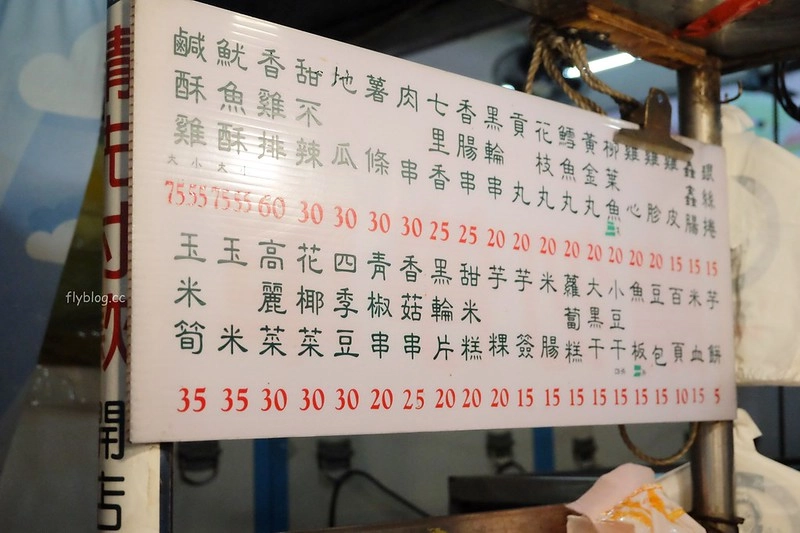 鹹酥雞 大小 75 55
魷魚酥 大小 75 55
香雞排 60
甜不辣 30
地瓜 30
薯條 30
肉串 30
七里香 25
香腸串 25
黑輪串 20
貢丸 20
花枝丸 20
鱈魚丸 20
黃金丸 20
柳葉魚 20
雞心 20
雞胗 20
雞皮 15
鑫鑫腸 15
銀絲捲 15
玉米筍 35
玉米 35
高麗菜 30
花椰菜 30
四季豆 30
青椒串 20
香菇串 25
黑輪片 20
甜米糕 20
芋粿 20
芋簽 15
米腸 15
蘿蔔糕 15
大黑干 15
小豆干 15
魚板 15
豆包 15
百頁 10
米血 15
芋餅 5
開店
flyblog.cc